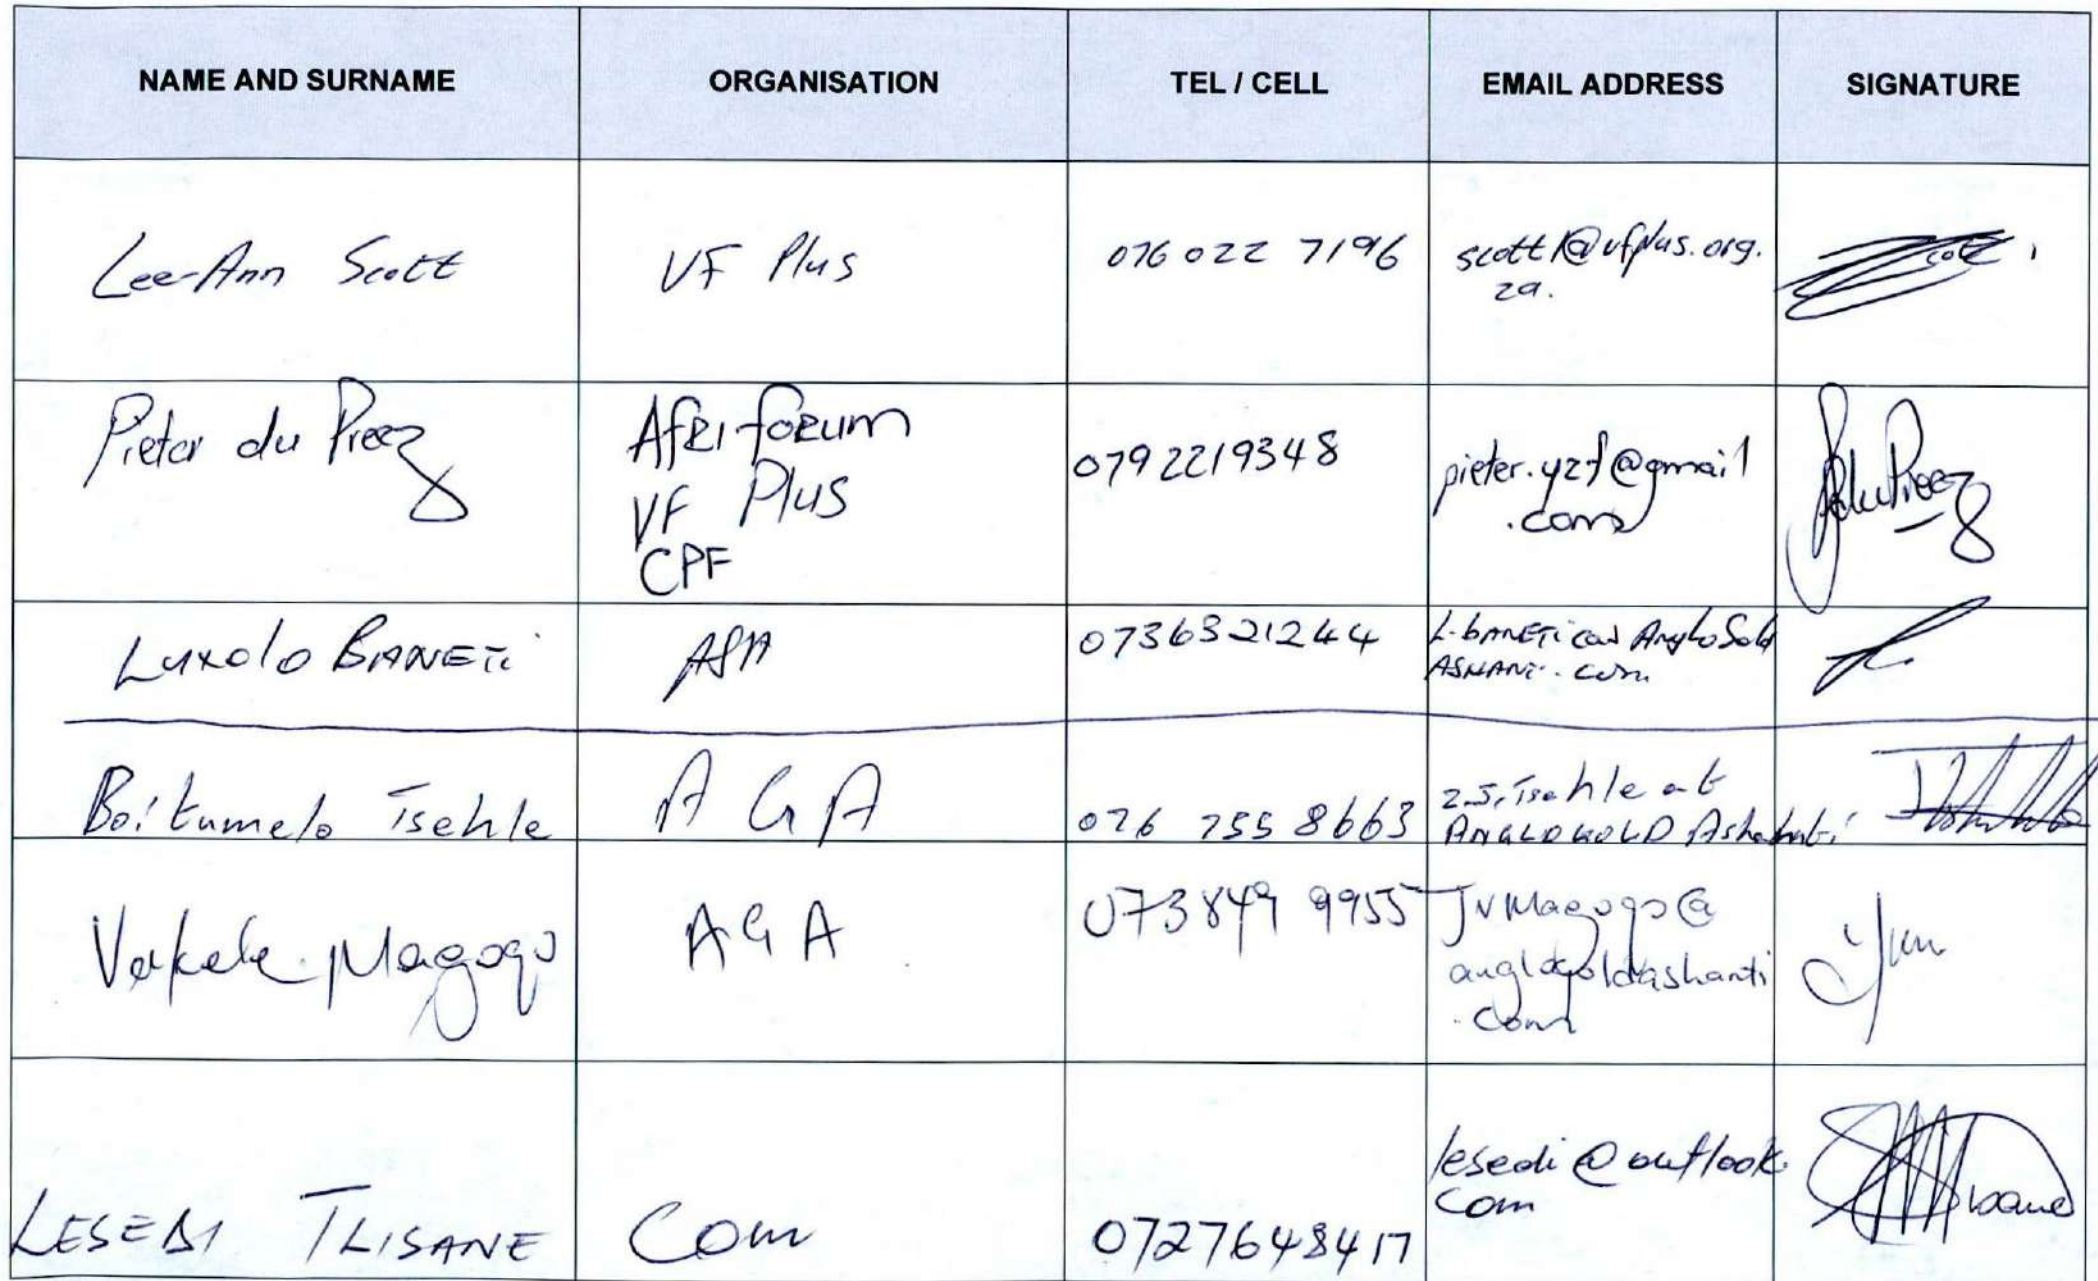 NAME AND SURNAME ORGANISATION TEL / CELL EMAIL ADDRESS SIGNATURE
Lee-Ann Scott VF Plus 076 022 7196 scottl@vfplus.org.
za.
Pieter du Preez Afriforum 0792219348 pieter.yzf@gmail
VF Plus .com
CPF
Luxolo BANETi AGA 0736321244
ASHANTi.com
Boitumelo Tsehle AGA 076 755 8663
ANGLOGOLD Ashanti
Magogo AGA 073 849 9955 JVMagogo@
anglogoldashanti
.com
LESEDI TLISANE Com 0727648417 lesedi@outlook.
com